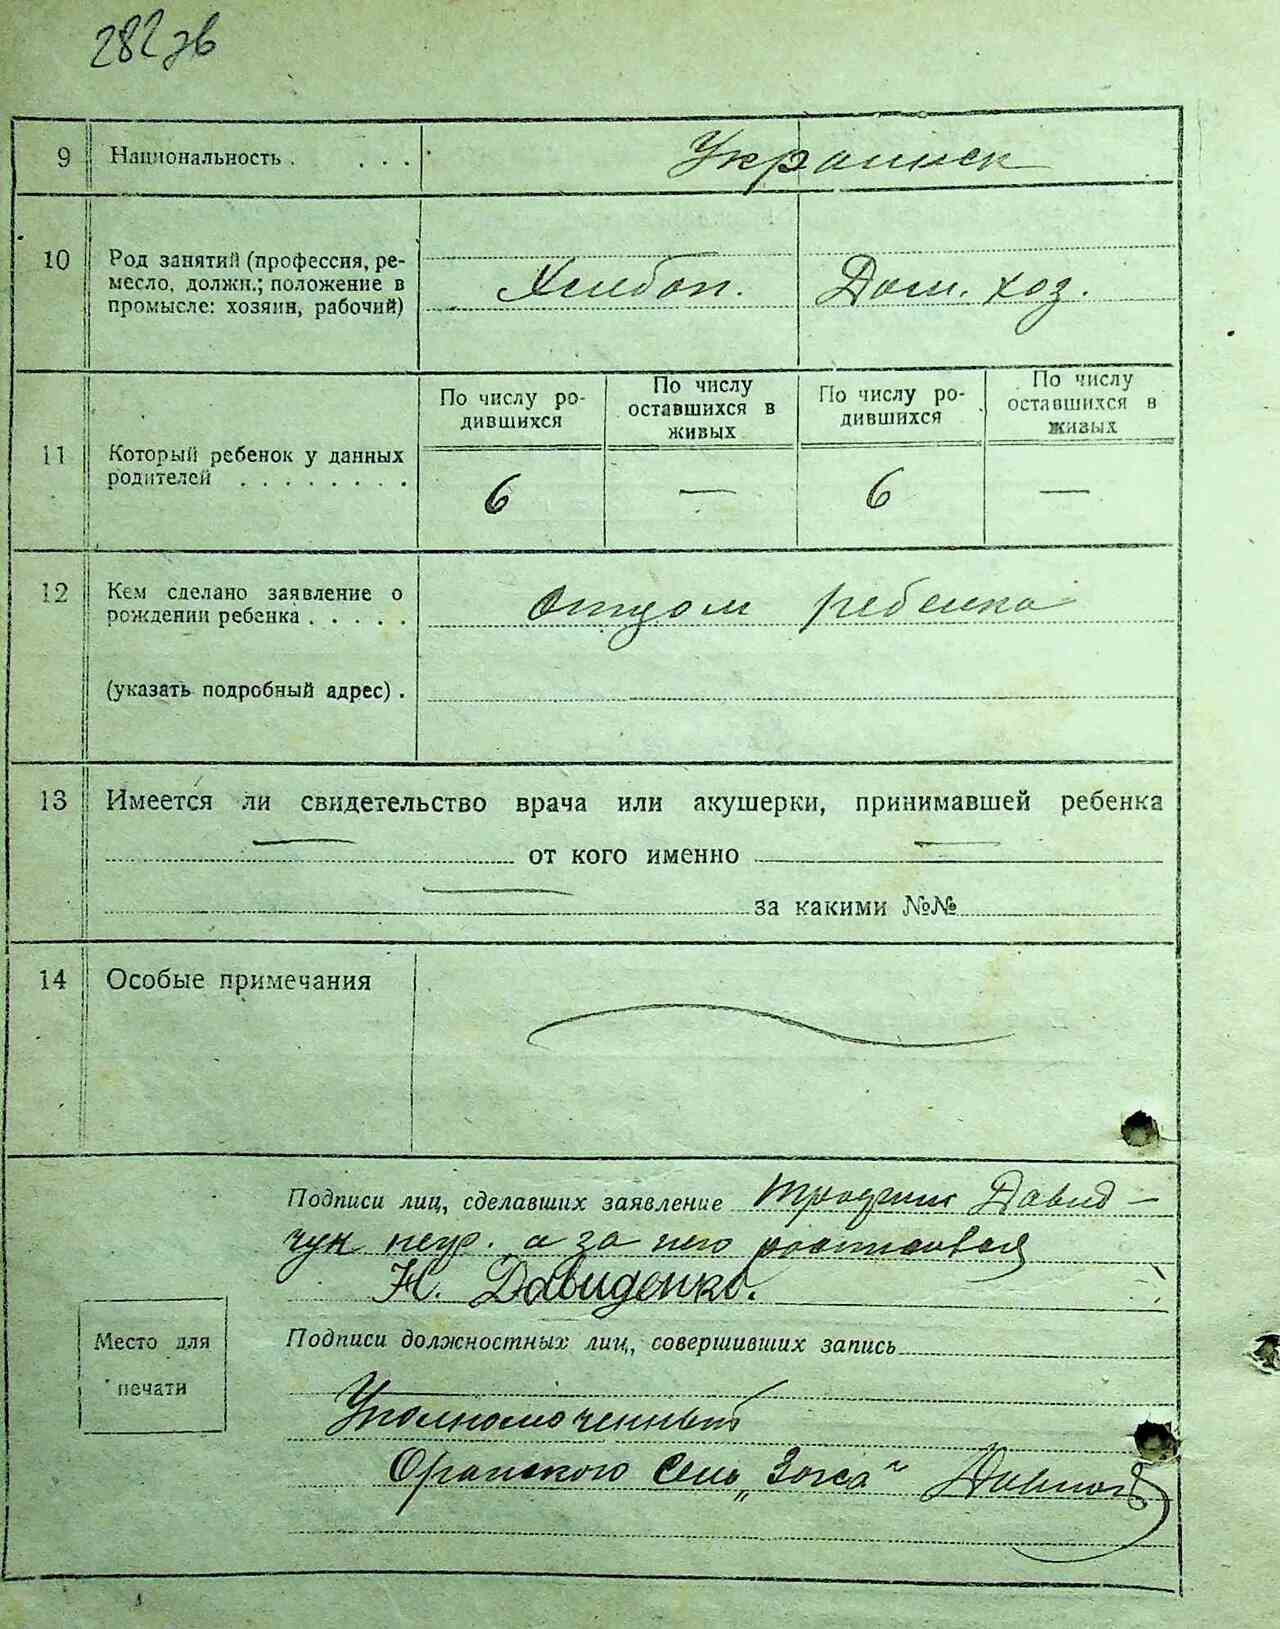 282 зв
9 Национальность . . . . Украинск
10 Род занятий (профессия, ре-
месло, должн.; положение в
промысле: хозяин, рабочий)
Хлебоп. Дом. хоз.
По числу ро-
дившихся
По числу
оставшихся в
живых
По числу ро-
дившихся
По числу
оставшихся в
живых
11 Который ребенок у данных
родителей . . . . . . . .
6 — 6 —
12 Кем сделано заявление о
рождении ребенка . . . . .
Отцом ребенка
(указать подробный адрес) .
13 Имеется ли свидетельство врача или акушерки, принимавшей ребенка
— от кого именно —
— за какими №№
14 Особые примечания
Подписи лиц, сделавших заявление Трофим Давид-
чук негр. а за него росписався
Н. Давиденко.
Место для
печати
Подписи должностных лиц, совершивших запись
Уполномоченный
Оранского Сель „Загса“